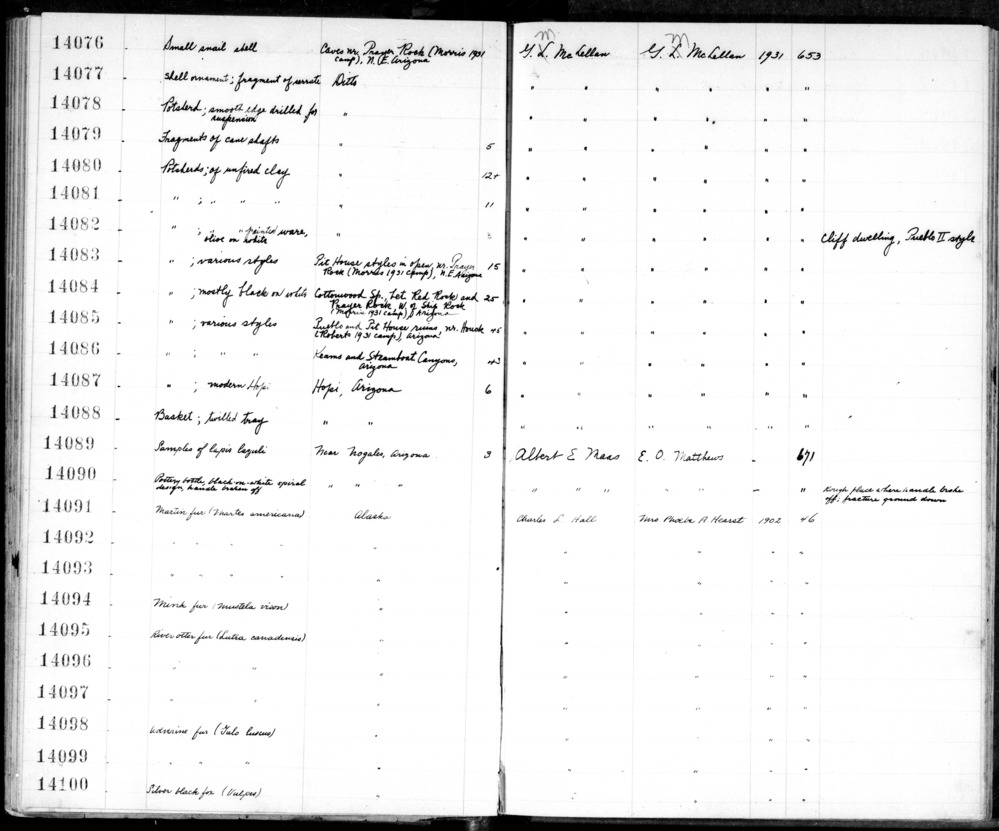 14076 Small snail shell Caves nr. Prayer Rock (Morris 1931 camp), N.E. Arizona G. L. McLellan G. L. McLellan 1931 653
14077 Shell ornament; fragment of serrate Ditto " " " " " "
14078 Potsherd; smooth edge drilled for suspension " " " " " " "
14079 Fragments of cane shafts " 5 " " " " " "
14080 Potsherds; of unfired clay " 12+ " " " " " "
14081 " ; " " " " 11 " " " " " "
14082 " ; " painted ware, olive on white " 3 " " " " " " Cliff dwelling, Pueblo II style
14083 " ; various styles Pit House styles in open, nr. Prayer Rock (Morris 1931 camp), N.E. Arizona 15 " " " " " "
14084 " ; mostly black on white Cottonwood Sp., bet. Red Rock and Prayer Rock, W. of Ship Rock (Morris 1931 camp), Arizona 25 " " " " " "
14085 " ; various styles Pueblo and Pit House ruins, nr. Houck (Roberts 1931 camp), Arizona 45 " " " " " "
14086 " ; " " Keams and Steamboat Canyons, Arizona 43 " " " " " "
14087 " ; modern Hopi Hopi, Arizona 6 " " " " " "
14088 Basket; twilled tray " " " " " " " "
14089 Samples of lapis lazuli Near Nogales, Arizona 3 Albert E Maas E. O. Matthews - 671
14090 Pottery bottle, black-on-white spiral design, handle broken off " " " " " " " " - " Rough place where handle broke off; fracture ground down
14091 Martin fur (Martes americana) Alaska Charles L Hall Mrs. Phoebe A Hearst 1902 46
14092 " " " " " " " " "
14093 " " " " " " " " "
14094 Mink fur (Mustela vison) " " " " "
14095 River otter fur (Lutra canadensis) " " " " "
14096 " " " " " " "
14097 " " " " " " "
14098 Wolverine fur (Gulo luscus) " " " " "
14099 " " " " " " " "
14100 Silver black fox (Vulpes) " " " " "